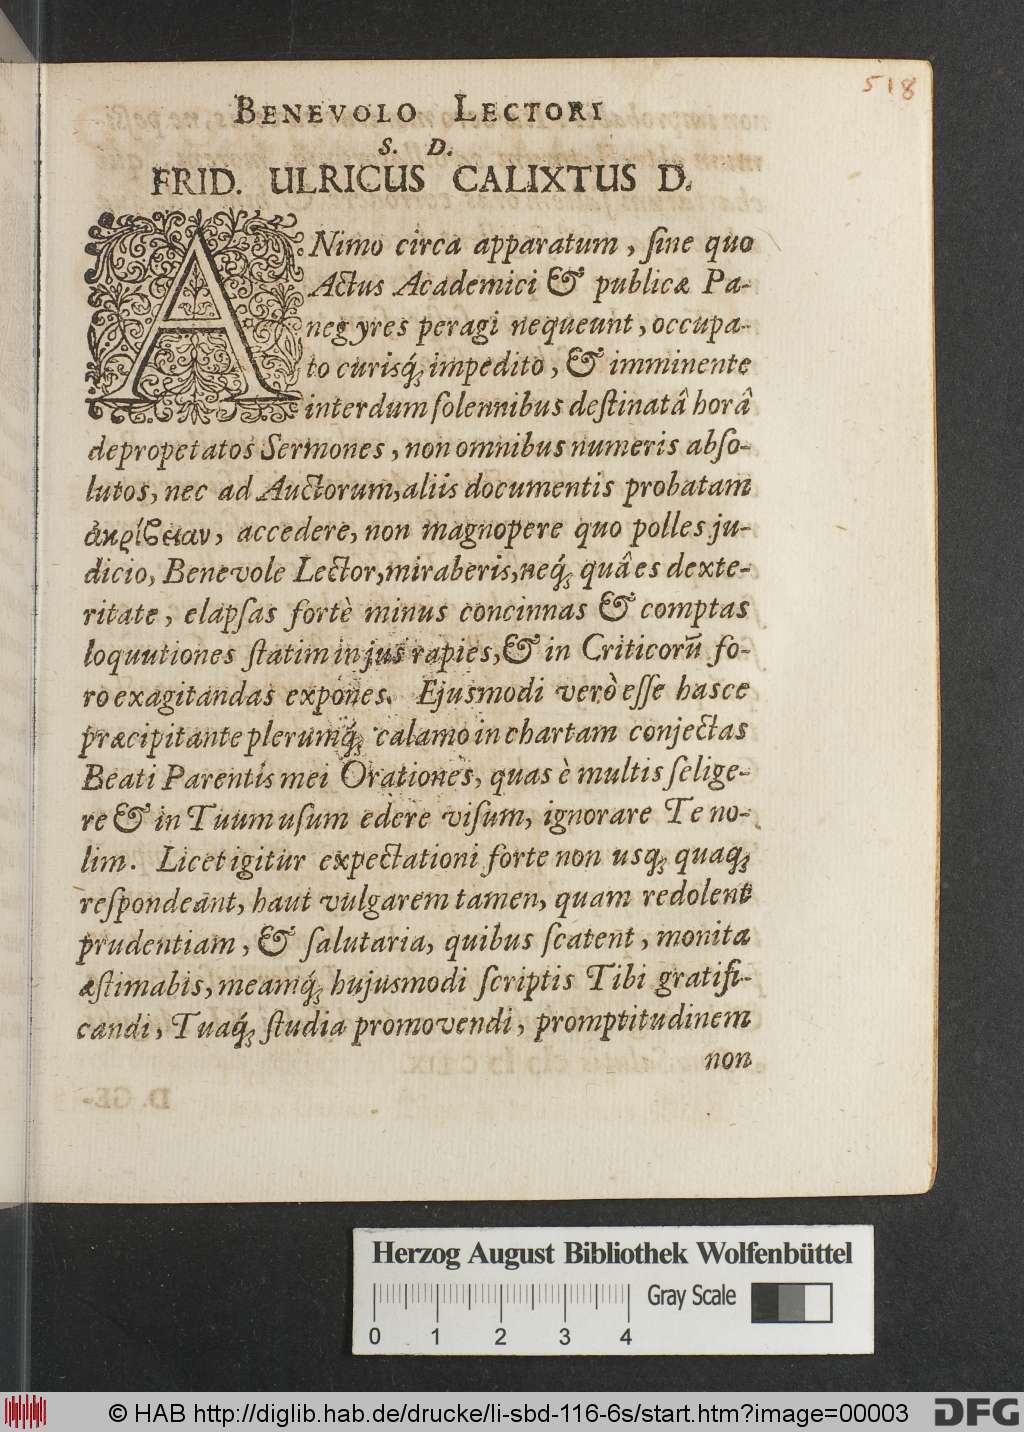 518
BENEVOLO LECTORI
S. D.
FRID. ULRICUS CALIXTUS D.
ANimo circa apparatum, ſine quo
Actus Academici & publicæ Pa-
negyres peragi nequeunt, occupa-
to curisq́; impedito, & imminente
interdum ſolennibus deſtinatâ horâ
depropetatos Sermones, non omnibus numeris abſo-
lutos, nec ad Auctorum, aliis documentis probatam
ἀκρίϐειαν, accedere, non magnopere quo polles ju-
dicio, Benevole Lector, miraberis, neq́; quâ es dexte-
ritate, elapſas fortè minus concinnas & comptas
loquutiones ſtatim in jus rapies, & in Criticorũ fo-
ro exagitandas expones. Ejusmodi verò eſſe hasce
præcipitante plerumq́; calamo in chartam conjectas
Beati Parentis mei Orationes, quas è multis ſelige-
re & in Tuum uſum edere viſum, ignorare Te no-
lim. Licet igitur expectationi forte non usq; quaq;
reſpondeant, haut vulgarem tamen, quam redolent
prudentiam, & ſalutaria, quibus ſcatent, monita
æſtimabis, meamq́; hujusmodi ſcriptis Tibi gratifi-
candi, Tuaq́; ſtudia promovendi, promptitudinem
non
Herzog August Bibliothek Wolfenbüttel
Gray Scale
0 1 2 3 4
© HAB http://diglib.hab.de/drucke/li-sbd-116-6s/start.htm?image=00003
DFG